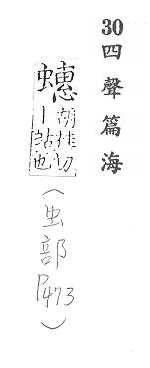 30 四聲篇海
蟪
胡桂切
丨蛄也
(虫部 P473)